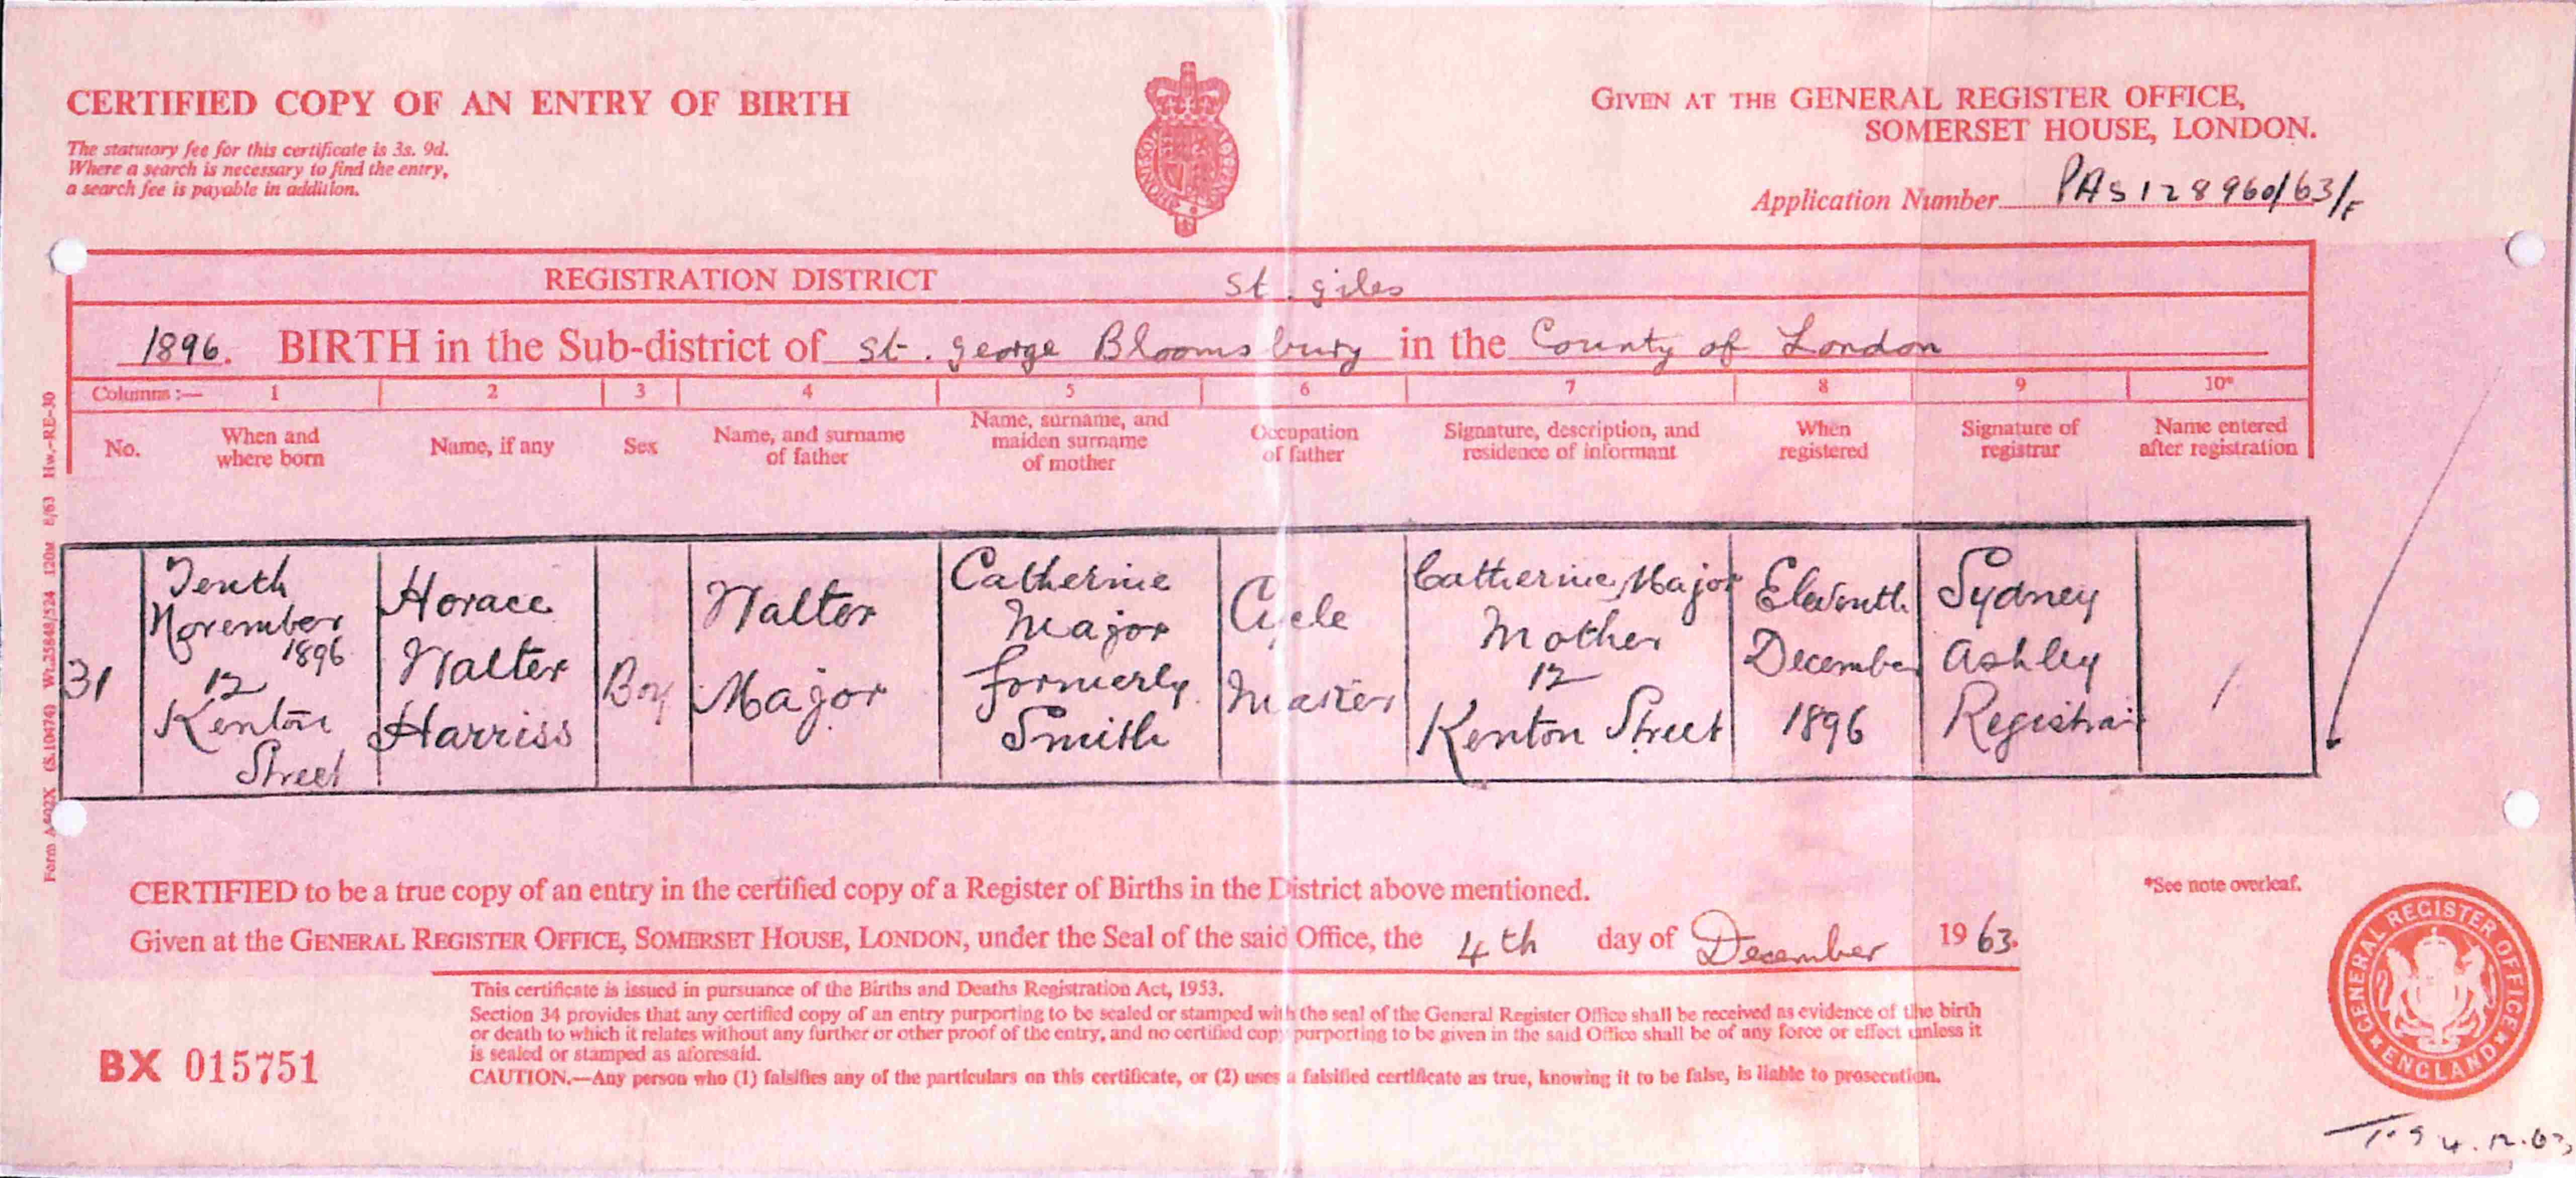 CERTIFIED COPY OF AN ENTRY OF BIRTH
The statutory fee for this certificate is 3s. 9d.
Where a search is necessary to find the entry,
a search fee is payable in addition.
GIVEN AT THE GENERAL REGISTER OFFICE,
SOMERSET HOUSE, LONDON.
Application Number PAS 128960/63/F
REGISTRATION DISTRICT St. Giles
1896. BIRTH in the Sub-district of St. George Bloomsbury in the County of London
Columns :— 1 2 3 4 5 6 7 8 9 10*
No.
When and
where born
Name, if any
Sex
Name, and surname
of father
Name, surname, and
maiden surname
of mother
Occupation
of father
Signature, description, and
residence of informant
When
registered
Signature of
registrar
Name entered
after registration
31
Tenth
November
1896
12
Kenton
Street
Horace
Walter
Harriss
Boy
Walter
Major
Catherine
Major
formerly
Smith
Cycle
Maker
Catherine Major
Mother
12
Kenton Street
Eleventh
December
1896
Sydney
Ashley
Registrar
/
CERTIFIED to be a true copy of an entry in the certified copy of a Register of Births in the District above mentioned.
*See note overleaf.
Given at the GENERAL REGISTER OFFICE, SOMERSET HOUSE, LONDON, under the Seal of the said Office, the 4th day of December 1963.
This certificate is issued in pursuance of the Births and Deaths Registration Act, 1953.
Section 34 provides that any certified copy of an entry purporting to be sealed or stamped with the seal of the General Register Office shall be received as evidence of the birth
or death to which it relates without any further or other proof of the entry, and no certified copy purporting to be given in the said Office shall be of any force or effect unless it
is sealed or stamped as aforesaid.
CAUTION.—Any person who (1) falsifies any of the particulars on this certificate, or (2) uses a falsified certificate as true, knowing it to be false, is liable to prosecution.
BX 015751
GENERAL REGISTER OFFICE
ENGLAND
4.12.63
Form A502X (S.10474) Wt.25848/524 120M 8/63 Hw.-RE-30